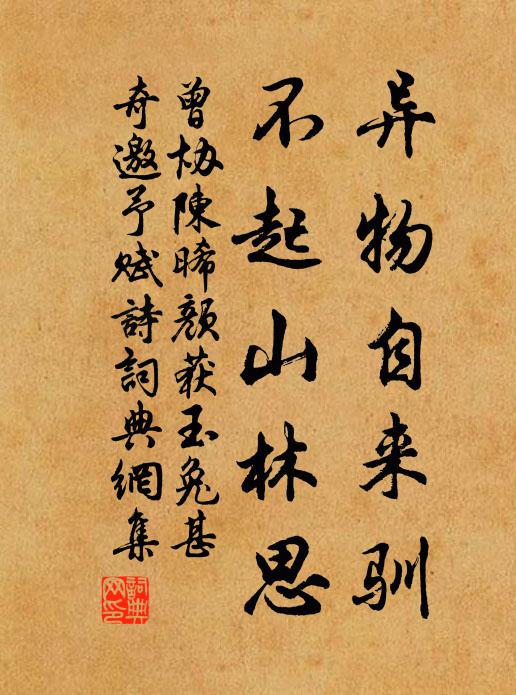 异物自来驯
不起山林思
曾协陳晞颜获玉兔甚
奇邀予赋詩詞典網集
詞典网印